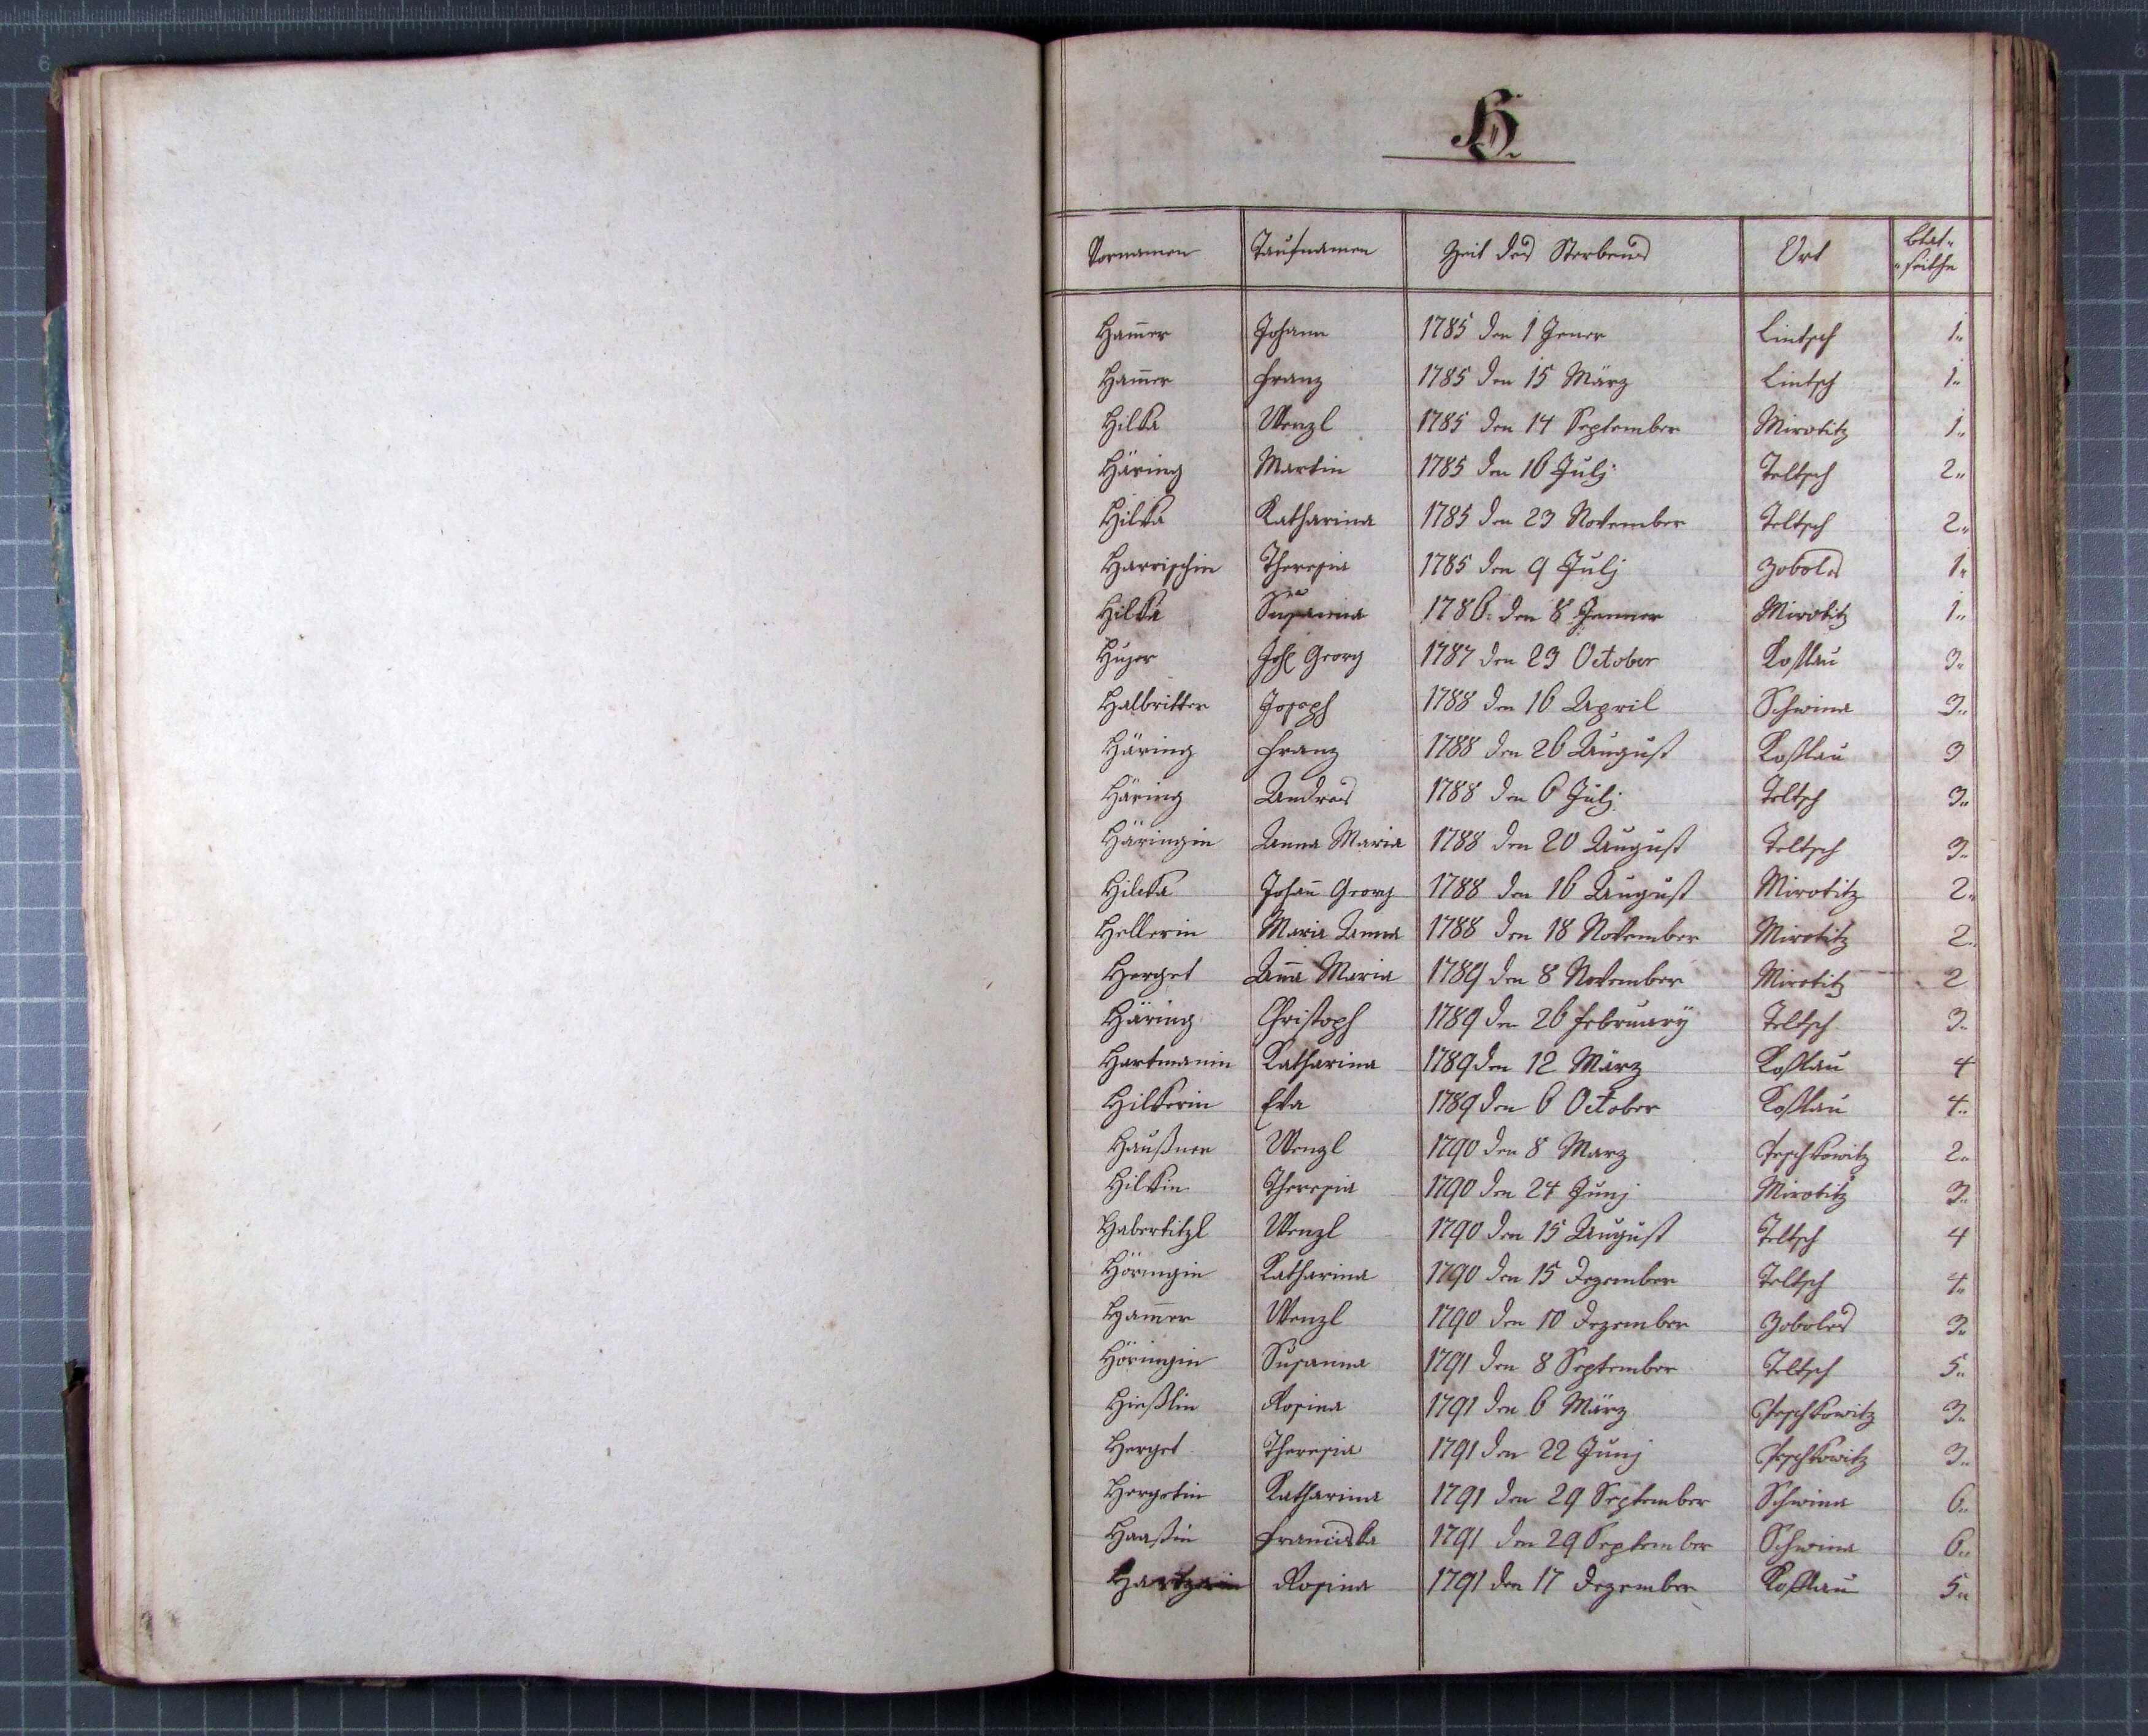 H.
Vornamen Taufnamen Zeit des Sterbens Ort Blat-
seithe
Ham̅er Johann 1785 den 1 Jener Lintsch 1..
Ham̅er Franz 1785 den 15 März Lintsch 1..
Hilka Wenzl 1785 den 14 September Mirotitz 1..
Häring Martin 1785 den 16 Julj Teltsch 2..
Hilka Katharina 1785 den 23 November Teltsch 2..
Harrischin Theresia 1785 den 9 Julj Zoboles 1..
Hilka Susanna 1786. den 8 Jenner Mirotitz 1..
Hujer Joh Georg 1787 den 23 October Kostlau 3..
Halbritter Joseph 1788 den 16 April Schwina 3..
Häring Franz 1788 den 26 August Kostlau 3
Häring Andres 1788 den 6 Julj Teltsch 3..
Häringin Anna Maria 1788 den 20 August Teltsch 3..
Hilka Johan̅ Georg 1788 den 16 August Mirotitz 2..
Hellerin Maria Anna 1788 den 18 November Mirotitz 2..
Herget An̅a Maria 1789 den 8 November Mirotitz 2
Häring Christoph 1789 den 26 Februarÿ Teltsch 3..
Hartmanin Katharina 1789 den 12 März Kostlau 4
Hilkerin Eva 1789 den 6 October Kostlau 4..
Haußner Wenzl 1790 den 8 Marz Peschkowitz 2..
Hilkin Theresia 1790 den 24 Junj Mirotitz 3..
Habertitzl Wenzl 1790 den 15 August Teltsch 4
Höringin Katharina 1790 den 15 Dezember Teltsch 4..
Ham̅er Wenzl 1790 den 10 Dezember Zoboles 3..
Höringin Susanna 1791 den 8 September Teltsch 5..
Hießlin Rosina 1791 den 6 März Peschkowitz 3..
Herget Theresia 1791 den 22 Junj Peschkowitz 3..
Hergetin Katharina 1791 den 29 September Schwina 6..
Haaßin Franciska 1791 den 29 September Schwina 6..
Rosina 1791 den 17 Dezember Kostlau 5..